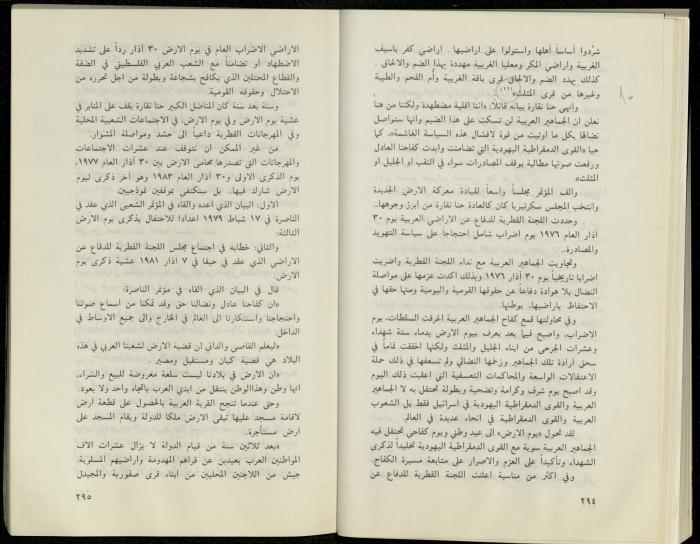 شرّدوا أساساً أهلها واستولوا على اراضيها. اراضي كفر ياسيف
الغربية واراضي المكر ومعليا الغربية مهددة بهذا الضم والالحاق.
كذلك يهدد الضم والالحاق قرى باقة الغربية وأم الفحم والطيبة
وغيرها من قرى المثلث»(١١١).
وانهى حنا نقارة بيانه قائلا: «اننا اقلية مضطهدة ولكننا من هنا
نعلن ان الجماهير العربية لن تسكت على هذا الضيم واننا سنواصل
نضالنا بكل ما اوتيت من قوة لافشال هذه السياسة الغاشمة». كما
حيا «القوى الدمقراطية اليهودية التي تضامنت وايدت كفاحنا العادل
ورفعت صوتها مطالبة بوقف المصادرات سواء في النقب او الجليل او
المثلث».
والف المؤتمر مجلساً واسعاً لقيادة معركة الارض الجديدة
وانتخب المجلس سكرتيريا كان كالعادة حنا نقارة من ابرز وجوهها..
وحددت اللجنة القطرية للدفاع عن الاراضي العربية يوم ٣٠
آذار العام ١٩٧٦ يوم اضراب شامل احتجاجا على سياسة التهويد
والمصادرة..
وتجاوبت الجماهير العربية مع نداء اللجنة القطرية واضربت
اضرابا تاريخياً يوم ٣٠ آذار ١٩٧٦ وبذلك اكدت عزمها على مواصلة
النضال بلا هوادة دفاعاً عن حقوقها القومية واليومية ومنها حقها في
الاحتفاظ باراضيها، بوطنها.
وفي محاولتها قمع كفاح الجماهير العربية اغرقت السلطات، يوم
الاضراب، واصبح فيما بعد يعرف بيوم الارض بدماء ستة شهداء
وعشرات الجرحى من ابناء الجليل والمثلث ولكنها اخفقت تماماً في
سحق ارادة تلك الجماهير وزخمها النضالي ولم تسعفها في ذلك حملة
الاعتقالات الواسعة والمحاكمات التعسفية التي اعقبت ذلك اليوم
وقد اصبح يوم شرف وكرامة وتضحية وبطولة تحتفل به لا الجماهير
العربية والقوى الدمقراطية اليهودية في اسرائيل فقط بل الشعوب
العربية والقوى الدمقراطية في انحاء عديدة في العالم.
لقد تحول «يوم الارض» الى عيد وطني ويوم كفاحي تحتفل فيه
الجماهير العربية سوية مع القوى الدمقراطية اليهودية تخليداً لذكرى
الشهداء وتأكيداً على العزم والاصرار على متابعة مسيرة الكفاح.
وفي اكثر من مناسبة اعلنت اللجنة القطرية للدفاع عن
٢٩٤
الاراضي الاضراب العام في يوم الارض ٣٠ آذار رداً على تشديد
الاضطهاد او تضامناً مع الشعب العربي الفلسطيني في الضفة
والقطاع المحتلين الذي يكافح بشجاعة وبطولة من اجل تحرره من
الاحتلال وحقوقه القومية.
وسنة بعد سنة كان المناضل الكبير حنا نقارة يقف على المنابر في
عشية يوم الارض وفي يوم الارض، في الاجتماعات الشعبية المحلية
وفي المهرجانات القطرية داعياً الى حشد ومواصلة المشوار.
من غير الممكن ان نتوقف عند عشرات الاجتماعات
والمهرجانات التي تصدرها محامي الارض بين ٣٠ آذار العام ١٩٧٧،
يوم الذكرى الاولى و٣٠ آذار العام ١٩٨٣ وهو آخر ذكرى ليوم
الارض شارك فيها.. بل سنكتفي بموقفين نموذجيين.
الاول: البيان الذي اعده والقاه في المؤتمر الشعبي الذي عقد في
الناصرة في ١٧ شباط ١٩٧٩ اعدادا للاحتفال بذكرى يوم الارض
الثالثة:
والثاني: خطابه في اجتماع مجلس اللجنة القطرية للدفاع عن
الاراضي الذي عقد في حيفا في ٧ آذار ١٩٨١ عشية ذكرى يوم
الارض.
قال في البيان الذي القاه في مؤتمر الناصرة:
«ان كفاحنا عادل ونضالنا حق وقد تمكنا من اسماع صوتنا
واحتجاجنا واستنكارنا الى العالم في الخارج والى جميع الاوساط في
الداخل.
«ليعلم القاصي والداني ان قضية الارض لشعبنا العربي في هذه
البلاد هي قضية كيان ومستقبل ومصير.
«ان الارض في بلادنا ليست سلعة معروضة للبيع والشراء،
انها وطن وهذا الوطن ينتقل من ايدي العرب باتجاه واحد ولا يعود.
وحتى عندما تنجح القرية العربية بالحصول على قطعة ارض
لاقامة مسجد عليها تبقى الارض ملكا للدولة ويقام المسجد على
ارض مستأجرة..
«بعد ثلاثين سنة من قيام الدولة لا يزال عشرات الاف
المواطنين العرب بعيدين عن قراهم المهدومة واراضيهم المسلوبة.
جيش من اللاجئين المحليين من ابناء قرى صفورية والمجيدل
٢٩٥